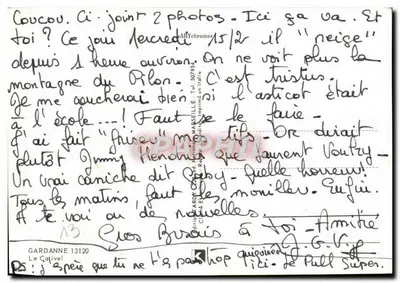 Coucou. Ci joint 2 photos - Ici ça va. Et
toi ? Ce jour Mercredi 15/2 il "neige"
depuis 1 heure environ. On ne voit plus la
montagne du Pilon. C'est tristus.
Je me coucherai bien si l'asticot était
à l'école ---! Faut se le faire -
J'ai fait "friser" mes tifs. On dirait
plutôt Jimmy Hendrix que Laurent Voulzy -
Un vrai caniche dit Gaby - Quelle horreur !
Tous les matins faut les mouiller. Enfin.
A te voir ou de nouvelles
13 Gros Bisous à Toi - Amitié
GARDANNE 13120
Le Cativel
J.G.
PS: j'espère que tu ne t'es pas trop
ici - Le Pull super.